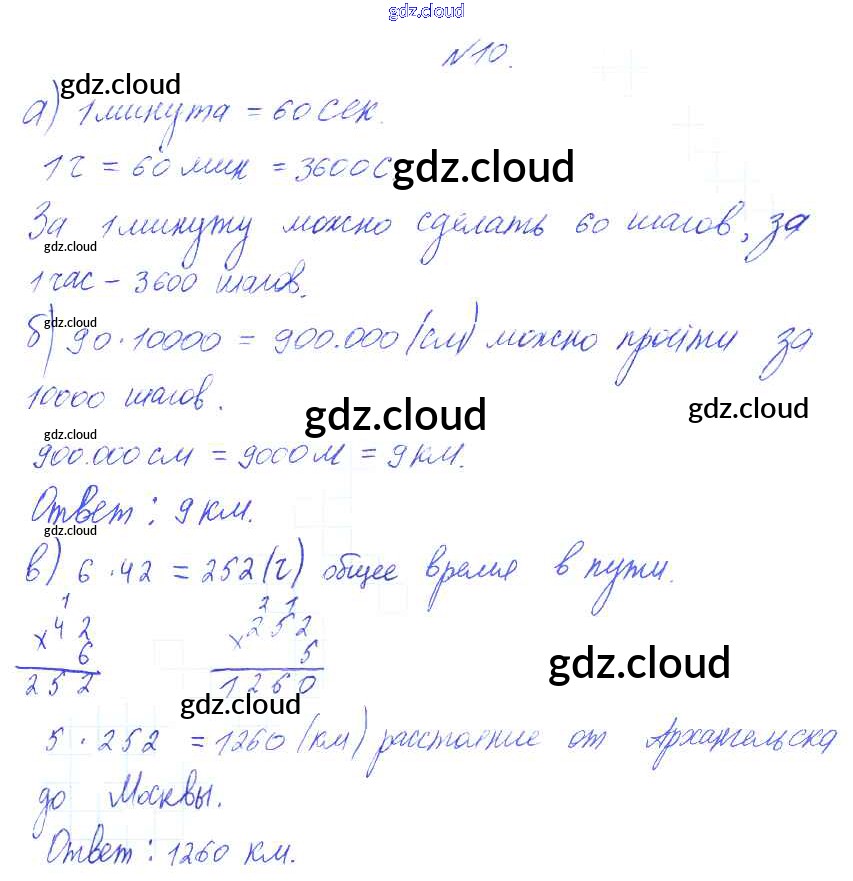 gdz.cloud
N10.
gdz.cloud
а) 1 минута = 60 сек.
1 ч = 60 мин = 3600 с
gdz.cloud
За 1 минуту можно сделать 60 шагов, за
gdz.cloud
1 час - 3600 шагов.
gdz.cloud
б) 90 · 10000 = 900.000 (см) можно пройти за
10000 шагов.
gdz.cloud
gdz.cloud
gdz.cloud
900.000 см = 9000 м = 9 км.
Ответ: 9 км.
gdz.cloud
в) 6 · 42 = 252 (ч) общее время в пути.
1 2 1
x 42 x 252
6 5
252 1260
gdz.cloud
gdz.cloud
5 · 252 = 1260 (км) расстояние от Архангельска
до Москвы.
Ответ: 1260 км.